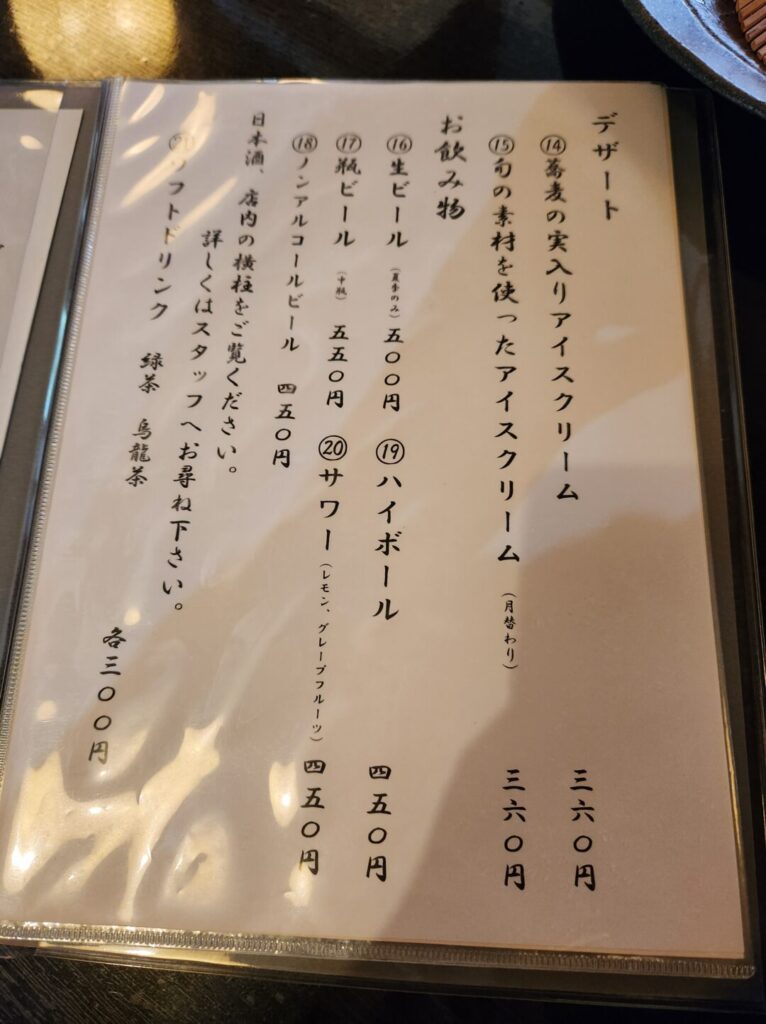 デザート
⑭蕎麦の実入りアイスクリーム 三六〇円
⑮旬の素材を使ったアイスクリーム（月替わり） 三六〇円
お飲み物
⑯生ビール（夏季のみ）五〇〇円
⑲ハイボール 四五〇円
⑰瓶ビール（中瓶）五五〇円
⑳サワー（レモン、グレープフルーツ）四五〇円
⑱ノンアルコールビール 四五〇円
日本酒、店内の横柱をご覧ください。
詳しくはスタッフへお尋ね下さい。
㉑ソフトドリンク 緑茶 烏龍茶 各三〇〇円